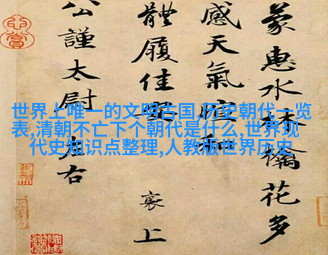 世界上唯一的文明古国,历史朝代一览
表,清朝不亡下个朝代是什么,世界现
代史知识点整理,人教版世界历史
蒙惠水林檎花多
感天氣暄和
體履佳
襄上
公謹太尉左右